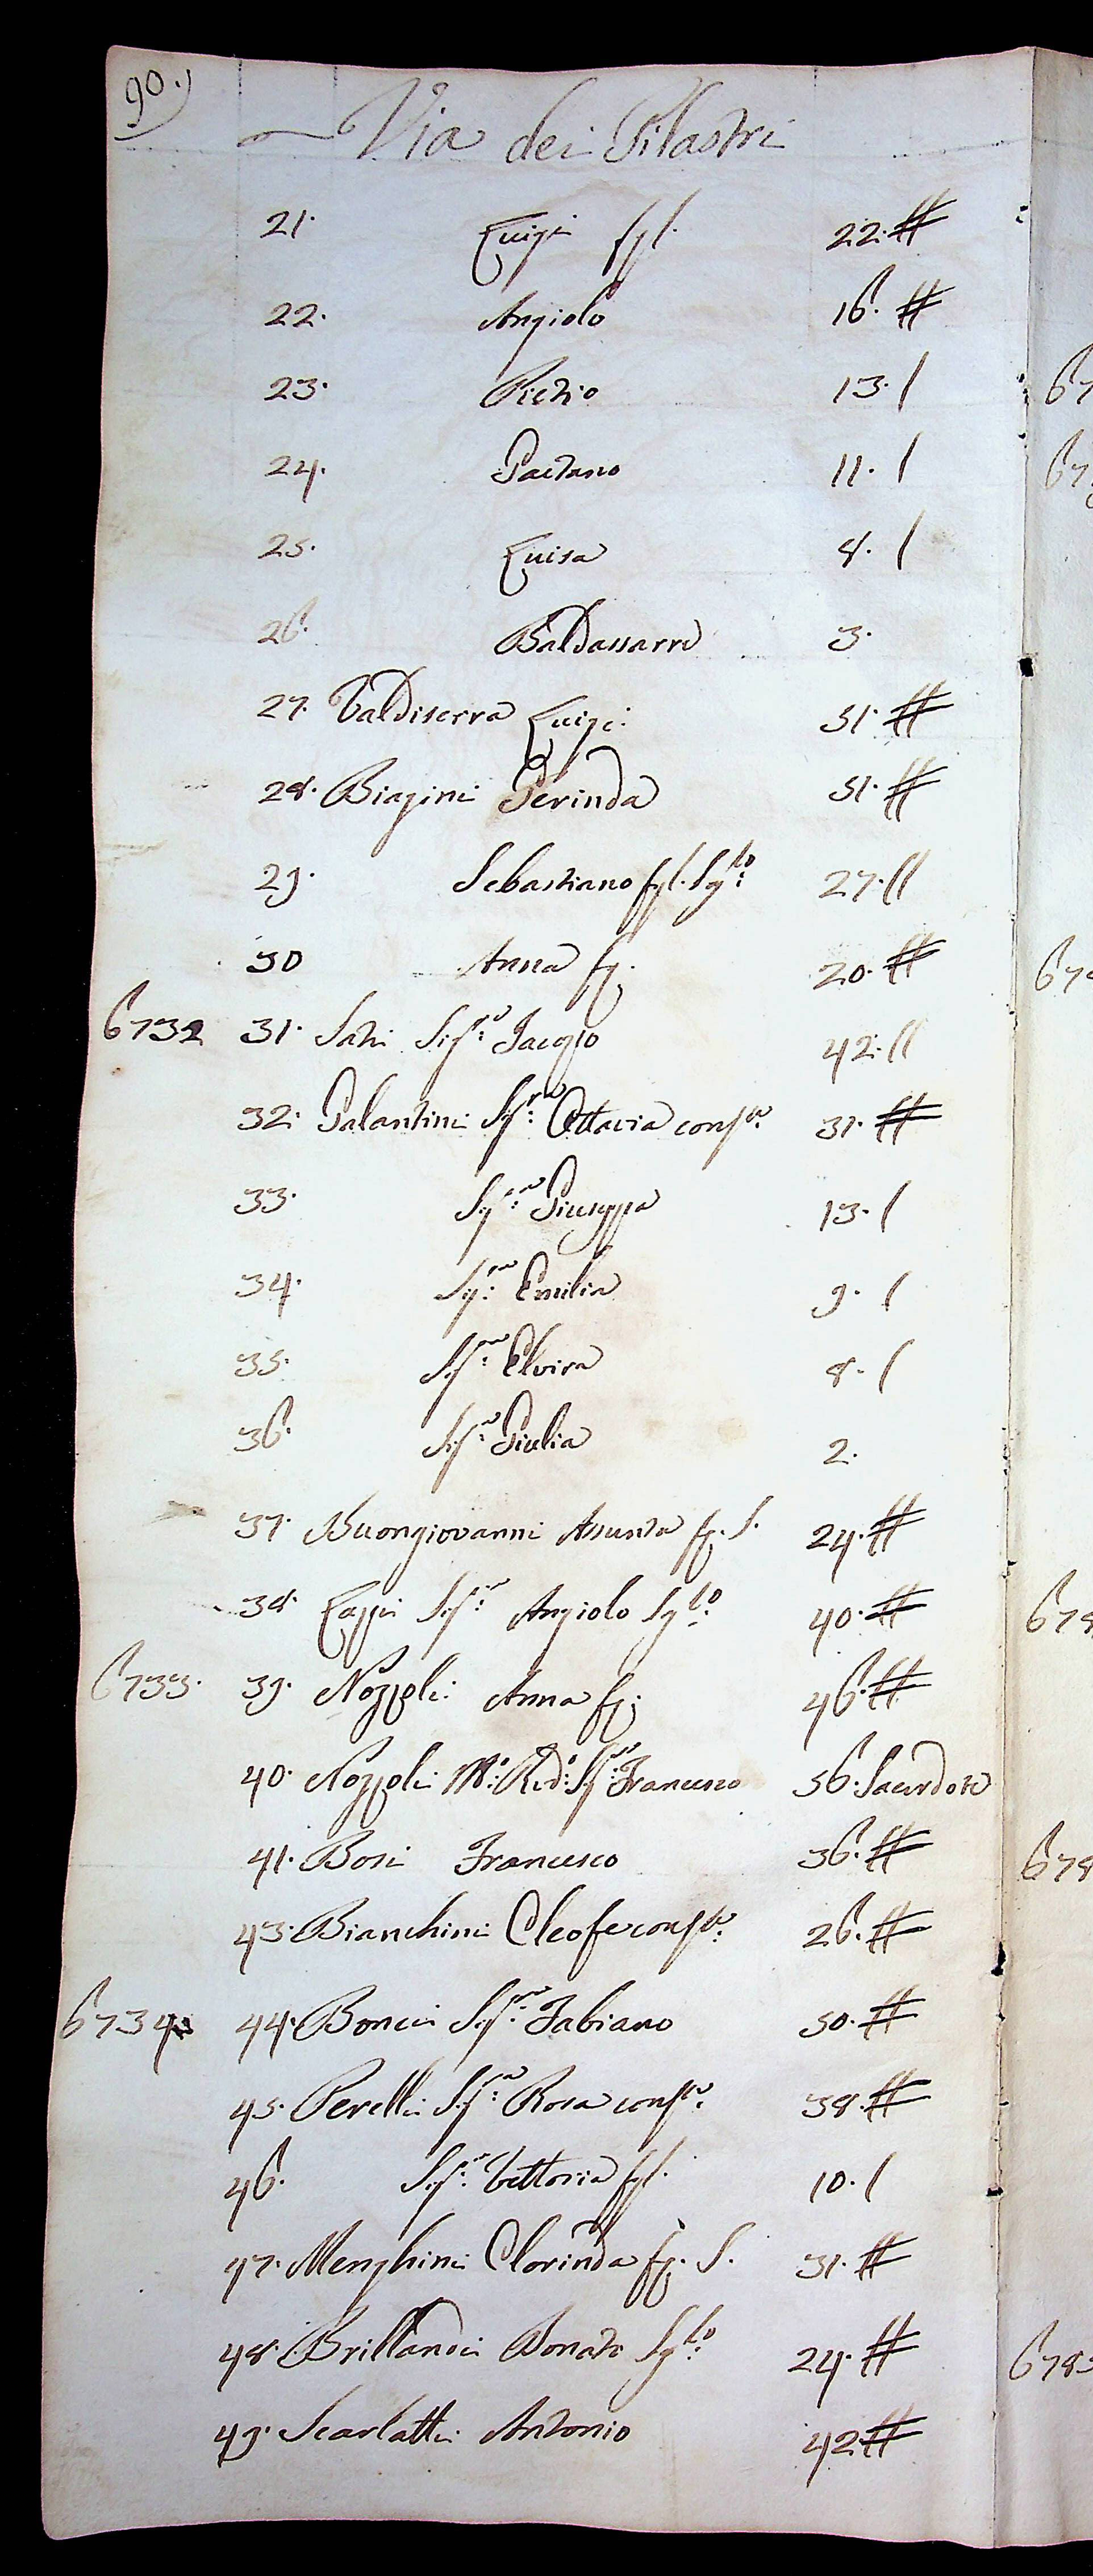 90.
Via dei Pilastri
21. Luigi fgl. 22.
22. Angiolo 16.
23. Pietro 13. /
24. Gaetano 11. /
25. Luisa 8. /
26. Baldassarre 3.
27. Valdiserra Luigi 51.
28. Biagini Gerinda 51.
29. Sebastiano fgl. Sglo: 27. //
30 Anna fg. 20.
6732 31. Sati Sigr: Jacopo 42. //
32. Galantini Sigra: Ottavia consta: 31.
33. Sigra: Giuseppa 13. /
34. Sigra: Emilia 9. /
35. Sigra: Elvira 8. /
36. Sigra: Giulia 2.
37. Buongiovanni Assunta fg. S. 24.
38. Lappi Sigr: Angiolo Sglo: 40.
6733. 39. Nozzoli Anna fg. 46.
40. Nozzoli M: Rdo: Sigr: Francesco 56. Sacerdote
41. Bosi Francesco 36.
43. Bianchini Cleofe consta: 26.
6734. 44. Bonci Sigr: Fabiano 50.
45. Perelli Sigra: Rosa consta: 38.
46. Sigra: Vettoria fgl. 10. /
47. Menghini Clorinda fg. S. 31.
48. Brillandi Donato Sglo: 24.
49. Scarlatti Antonio 42.